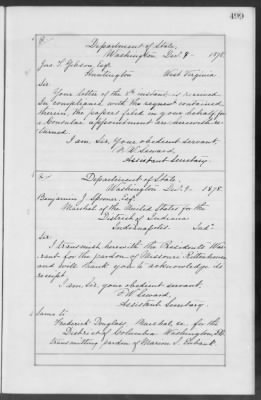 499
Department of State,
Washington Dec. 9 - 1878.
Jno. T. Gibson, Esqr.
Huntington West Virginia
Sir
Your letter of the 5th instant, is received
In compliance with the request contained
therein, the papers filed in your behalf for
a Consular appointment are herewith re-
turned.
I am, Sir, Your obedient servant,
F. W. Seward,
Assistant Secretary.
Department of State,
Washington Dec. 9 - 1878.
Benjamin J. Spooner, Esqr.
Marshal of the United States for the
District of Indiana
Indianapolis. Inda
Sir:
I transmit herewith the President's War-
rant for the pardon of Missouri Rittenhouse
and will thank you to acknowledge its
receipt.
I am Sir, your obedient servant,
F. W. Seward,
Assistant Secretary.
Same to
Frederick Douglass Marshal, &c. for the
District of Columbia Washington,
transmitting pardon of Marion S.